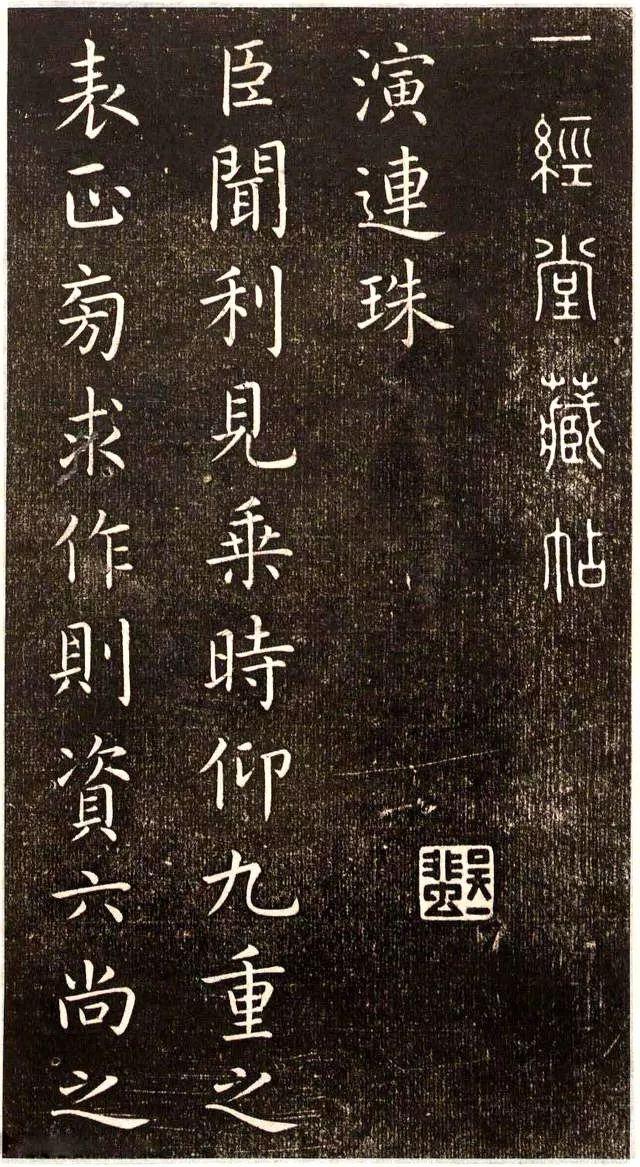 一經堂藏帖
演連珠
臣聞利見乗時仰九重之
表正旁求作則資六尚之